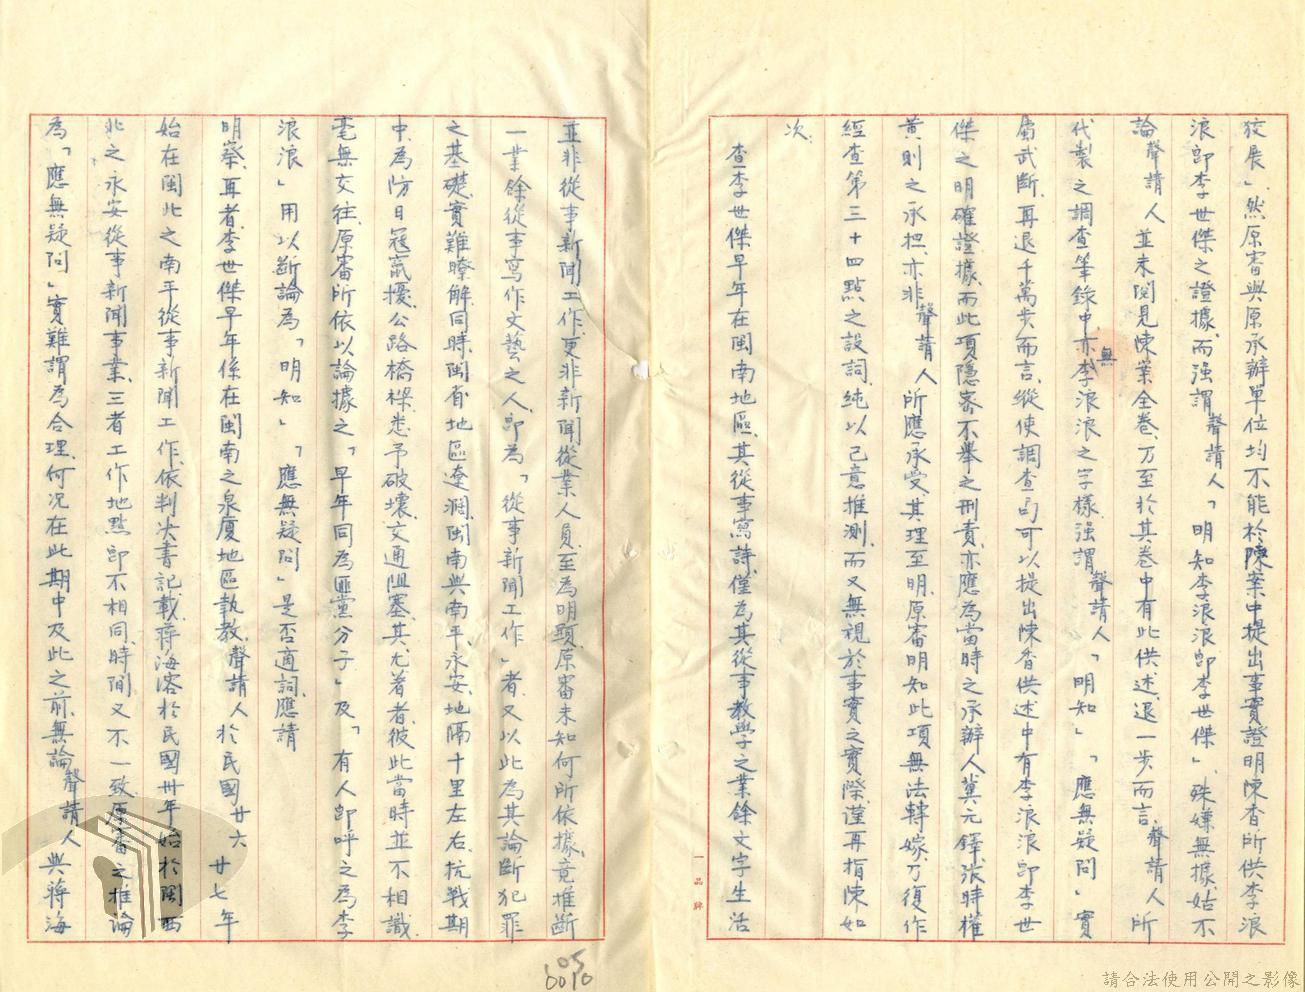 狡展」、然原審與原承辦單位均不能於陳案中提出事實證明陳香所供李浪
浪即李世傑之證據、而强謂聲請人「明知李浪浪即李世傑」、殊嫌無據、姑不
論聲請人並未閱見陳案全卷、乃至於其卷中有此供述、退一步而言、聲請人所
代製之調查筆錄中、亦無李浪浪之字樣、强謂聲請人「明知」「應無疑問」實
屬武斷、再退千萬步而言、縱使調查局可以提出陳香供述中有李浪浪即李世
傑之明確證據、而此項隱審不舉之刑責、亦應為當時之承辦人冀元鐸、張時權
黃則之承担、亦非聲請人所應承受、其理至明、原審明知此項無法轉嫁、乃復作
經查第三十四點之設詞、純以己意推測、而又無視於事實之實際、謹再指陳如
次、
查李世傑早年在閩南地區、其從事寫詩、僅為其從事教學之業餘文字生活
並非從事新聞工作、更非新聞從業人員、至為明顯、原審未知何所依據、竟推斷
一業餘從事寫作文藝之人、即為「從事新聞工作」者、又以此為其論斷犯罪
之基礎、實難瞭解、同時、閩省地區遼濶、閩南與南平、永安、地隔十里左右、抗戰期
中、為防日寇竄擾、公路橋樑、悉予破壞、交通阻塞、其尤著者、彼此當時並不相識
毫無交往、原審所依以論據之「早年同為匪黨分子」及「有人即呼之為李
浪浪」用以斷論為「明知」「應無疑問」是否適詞、應請
明察、再者、李世傑早年係在閩南之泉廈地區執教、聲請人於民國廿六廿七年
始在閩北之南平從事新聞工作、依判決書記載、蔣海溶於民國卅年始於閩西
北之永安從事新聞事業、三者工作地點即不相同、時間又不一致、原審之推論
為「應無疑問」實難謂為合理、何況在此期中及此之前、無論聲請人與蔣海
一品牌
05
0010
請合法使用公開之影像